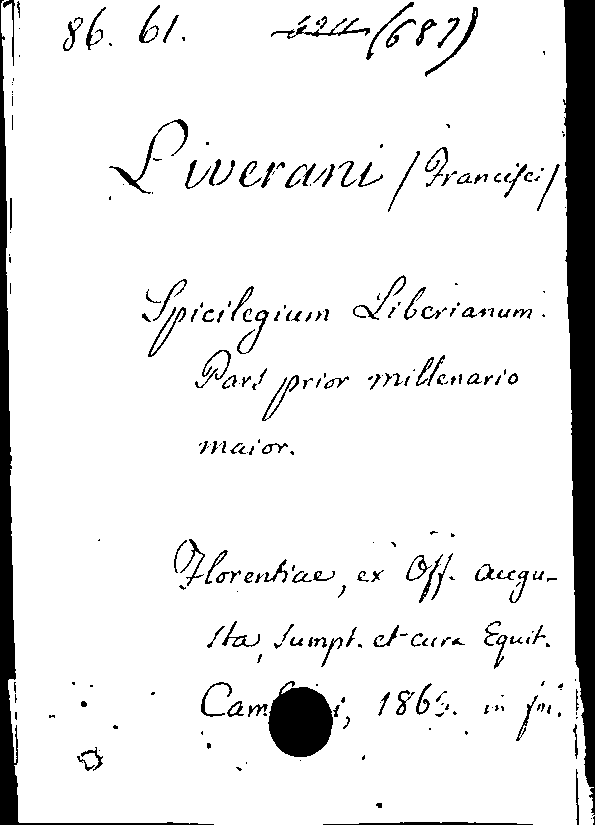 86. 61. (687)
Liverani / Francisci /
Spicilegium Liberianum.
Pars prior millenario
maior.
Florentiae, ex Off. augu-
sta, sumpt. et cura Equit.
in fol.